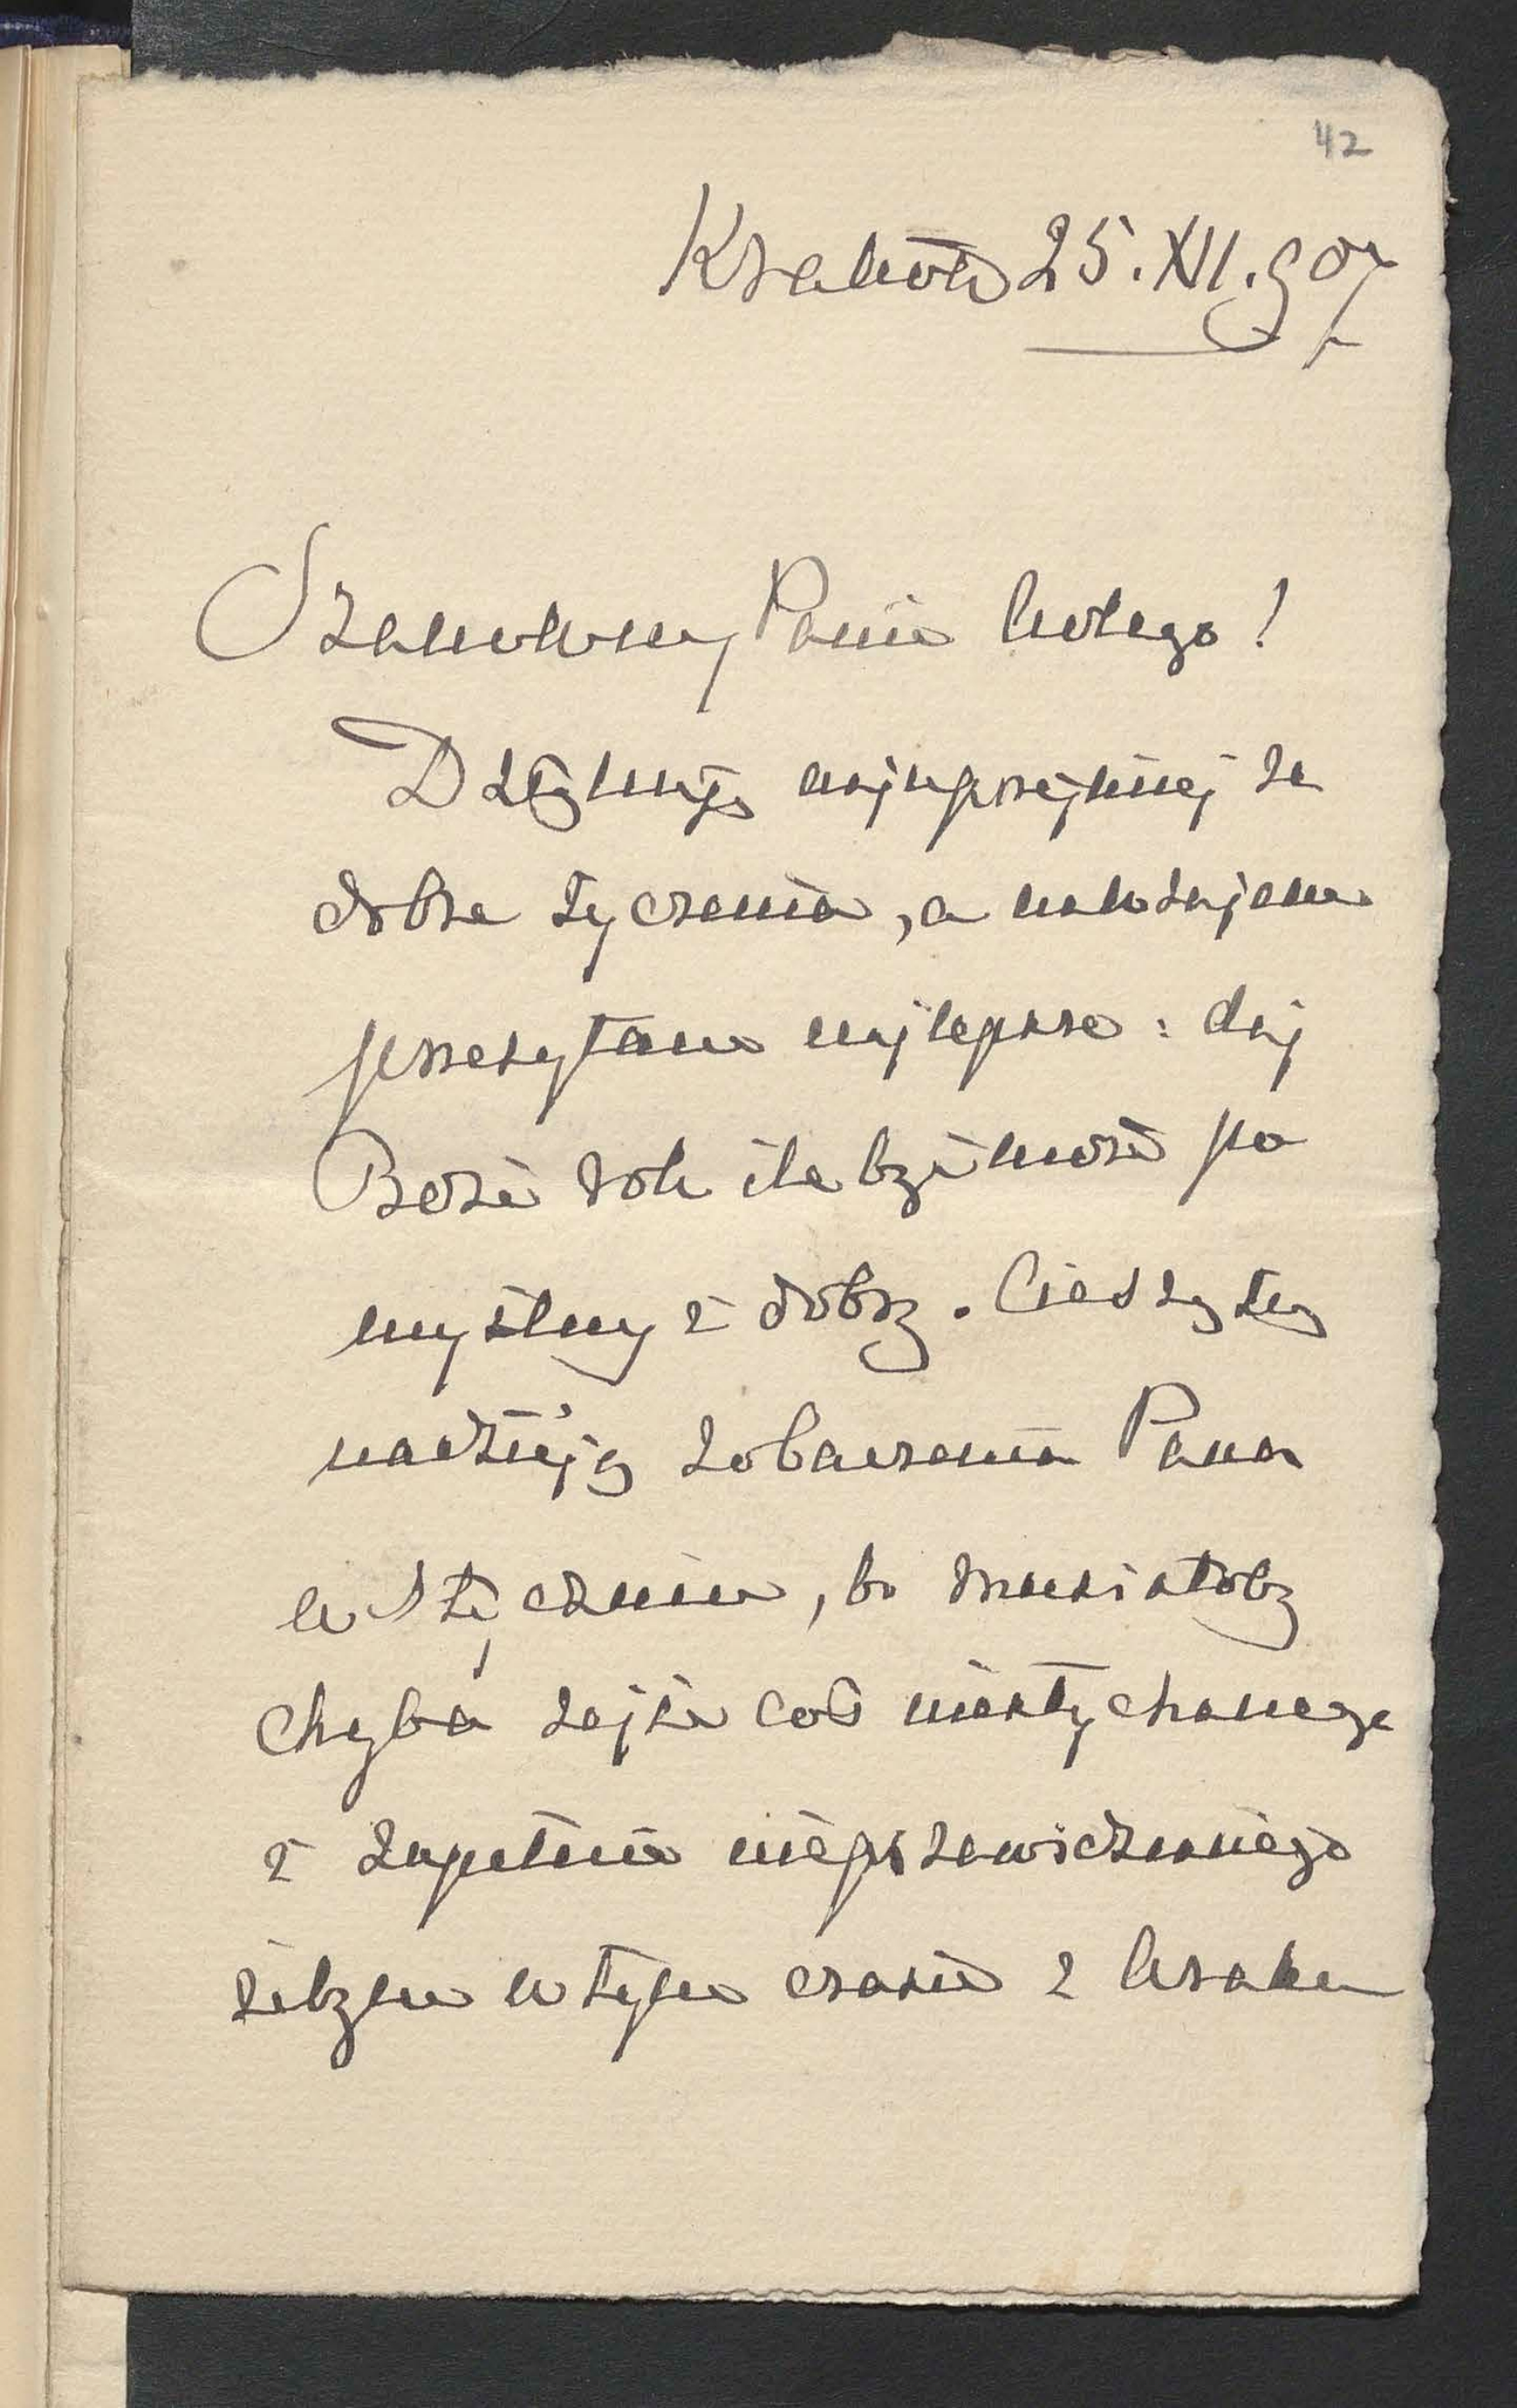 42
Kraków 25.XII.907
Szanowny Panie kolego!
Dziękuję najuprzejmiej za
dobre życzenia, a nawzajem
przesyłam najlepsze: daj
Boże rok ile być może po
myślny i dobry. Cieszy się
nadzieją zobaczenia Pana
w styczniu, bo musiałoby
chyba zajść coś niesłychanego
i zupełnie nieprzewidzianego
żebym w tym czasie z Krako